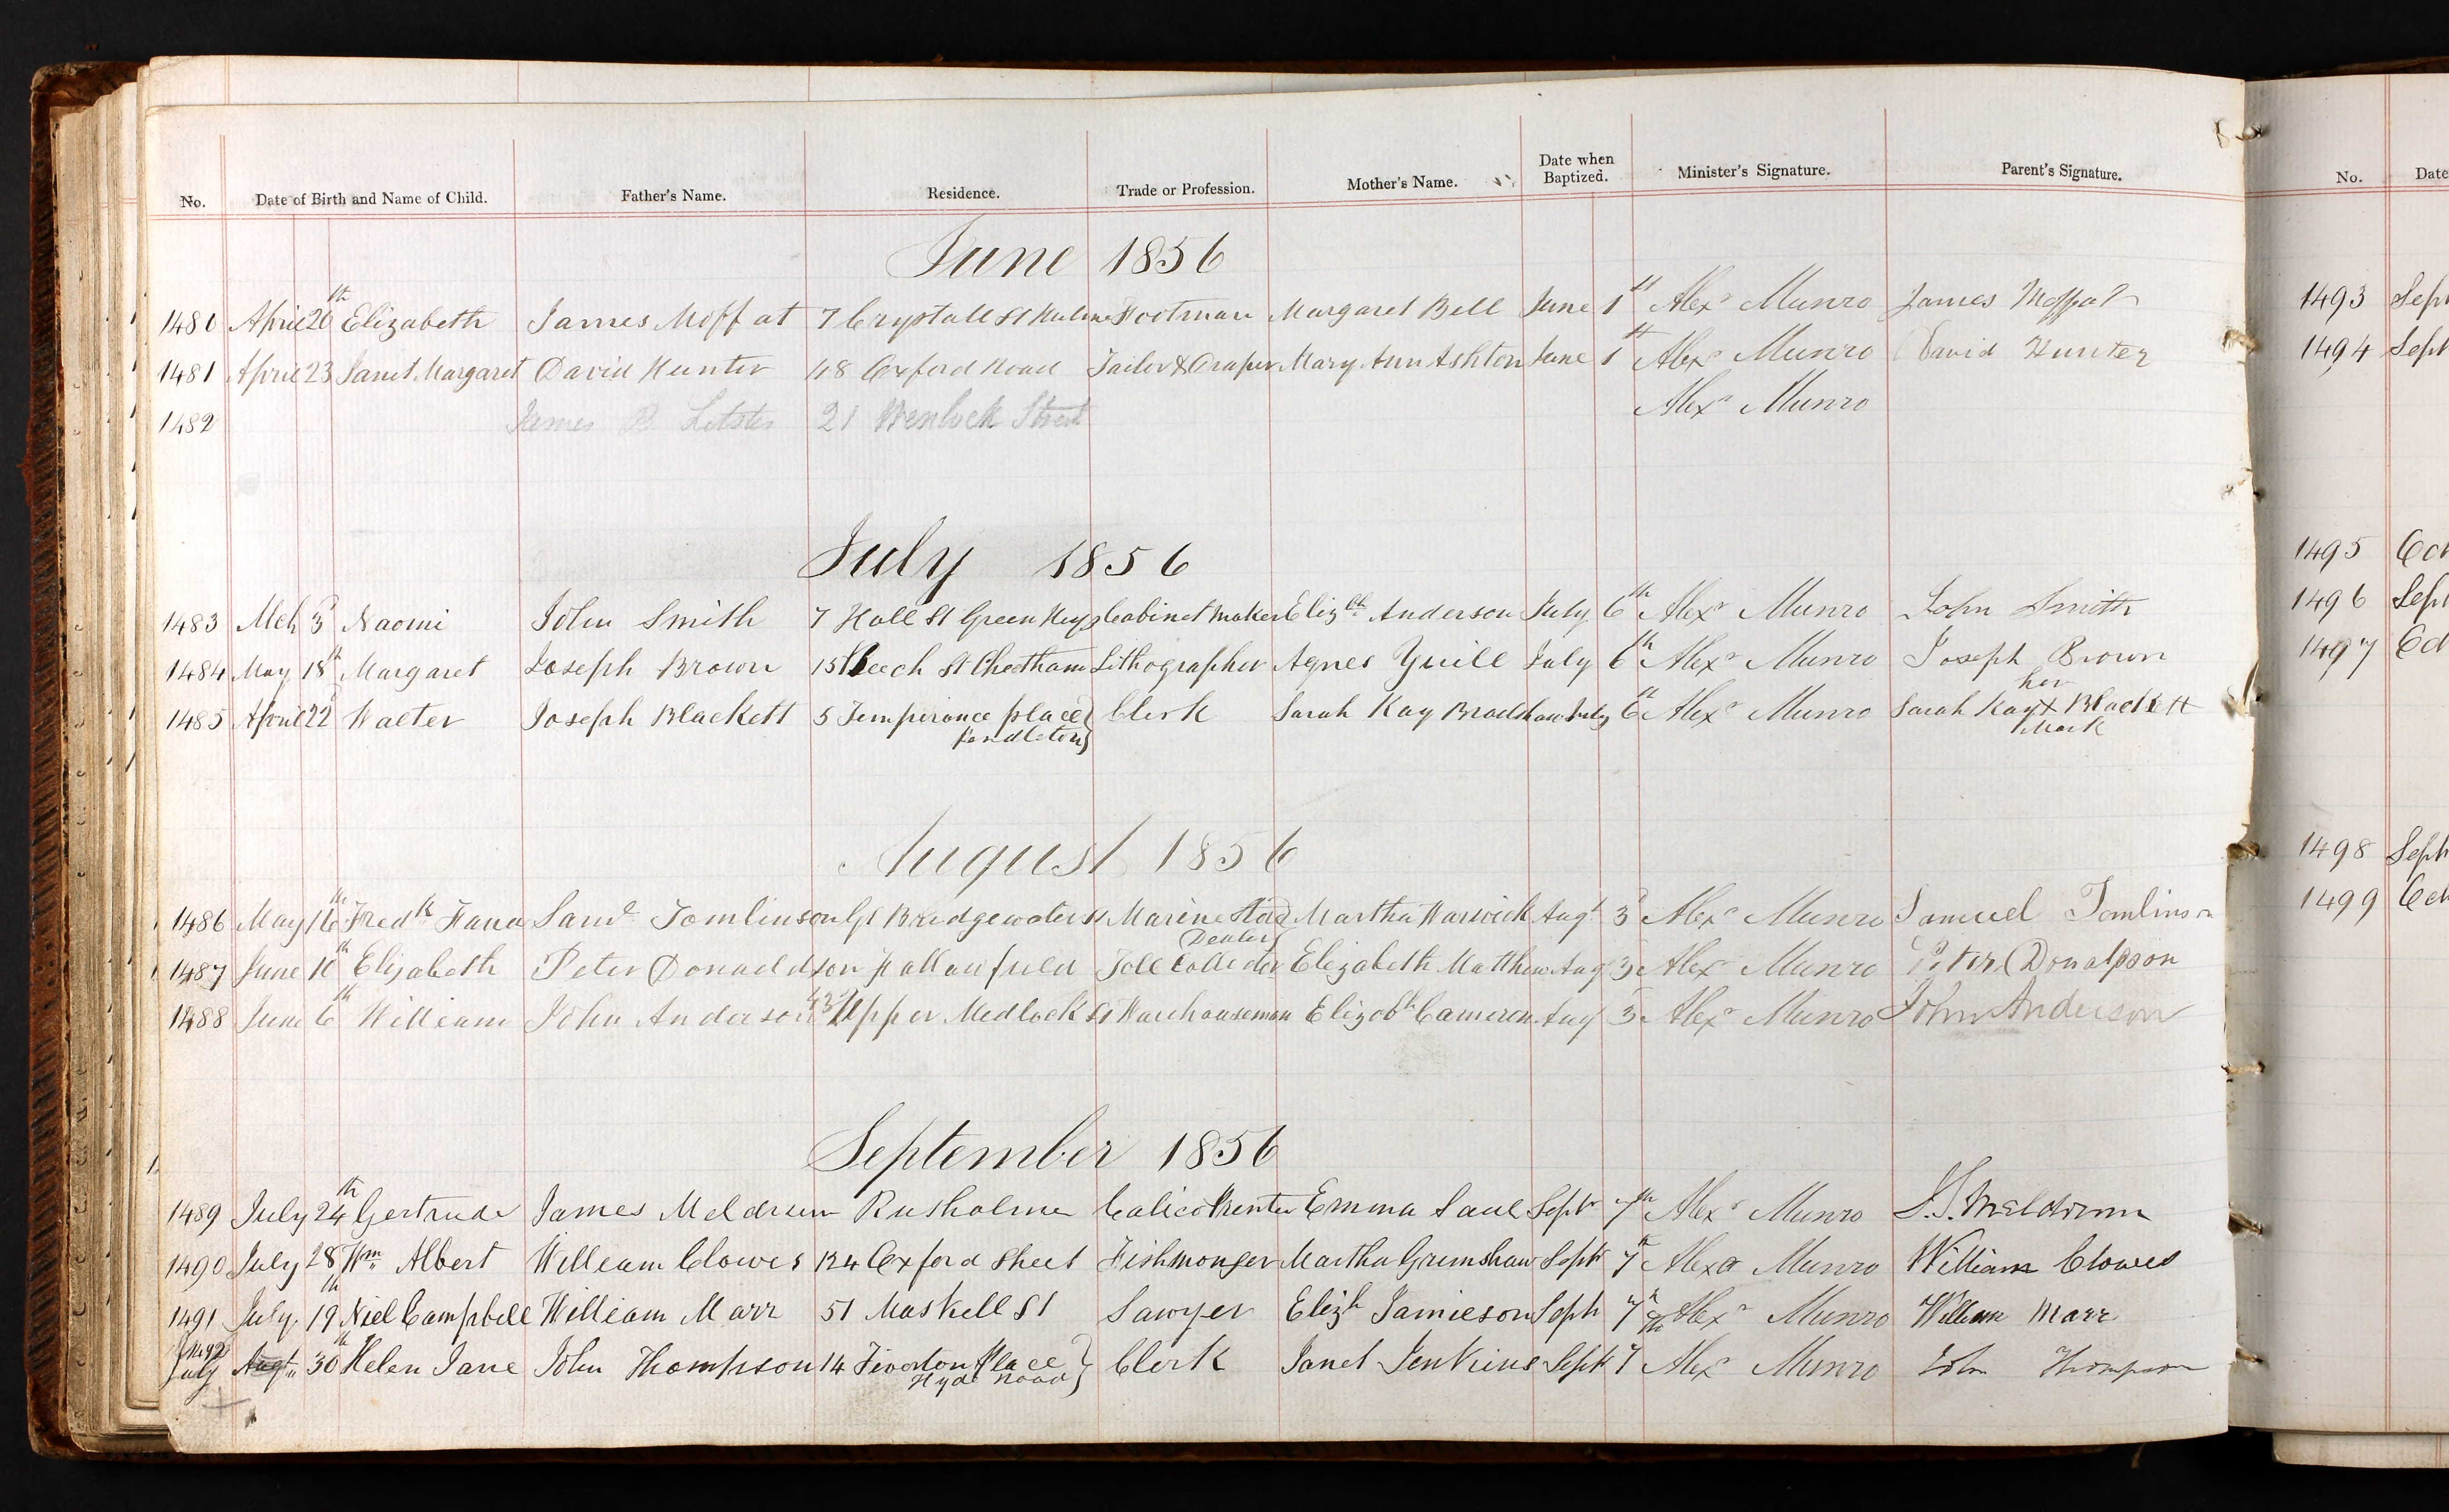 No. Date of Birth and Name of Child. Father's Name. Residence. Trade or Profession. Mother's Name. Date when Baptized. Minister's Signature. Parent's Signature.
June 1856
1480 April 20th Elizabeth James Moffat 7 Crystall St Hulme Footman Margaret Bell June 1st Alexr Munro James Moffat
1481 April 23 Janet Margaret David Hunter 48 Oxford Road Tailor & Draper Mary Ann Ashton June 1st Alexr Munro David Hunter
1482 James 21 Wenlock Street Alexr Munro
July 1856
1483 Mch 3d Naomi John Smith 7 Hall St Green Heys Cabinet Maker Elizbth Anderson July 6th Alexr Munro John Smith
1484 May 18th Margaret Joseph Brown 15 Beech St Cheetham Lithographer Agnes Yuill July 6th Alexr Munro Joseph Brown
1485 April 22d Walter Joseph Blackett 5 Temperance place Pendleton Clerk Sarah Kay Bradshaw July 6th Alexr Munro Sarah Kay her X mark Blackett
August 1856
1486 May 16th Fredk Saml Tomlinson Gt Bridgewater St Marine Store Dealer Martha Warwick Augt 3d Alexr Munro Samuel Tomlinson
1487 June 10th Elizabeth Peter Donaldson Toll Collector Elizabeth Matthew Aug 3d Alexr Munro Peter Donaldson
1488 June 6th William John Anderson Upper Medlock St Warehouseman Elizabth Cameron Aug 3d Alexr Munro John Anderson
September 1856
1489 July 24th Gertrude James Meldrum Rusholme Calico Printer Emma Saul Septr 7th Alexr Munro J. Meldrum
1490 July 28 Wm Albert William Clowes 124 Oxford Street Fishmonger Martha Grimshaw Septr 7th Alexr Munro William Clowes
1491 July 19th Niel Campbell William Marr 51 Maskell St Sawyer Elizh Jamieson Septr 7th Alexr Munro William Marr
1492 July Augt 30th Helen Jane John Thompson 14 Tiverton Place Hyde Road Clerk Janet Jenkins Septr 7th Alexr Munro John Thompson
No. Date
1493 Sept
1494 Sept
1495 Oct
1496 Sept
1497 Oct
1498 Sept
1499 Oct